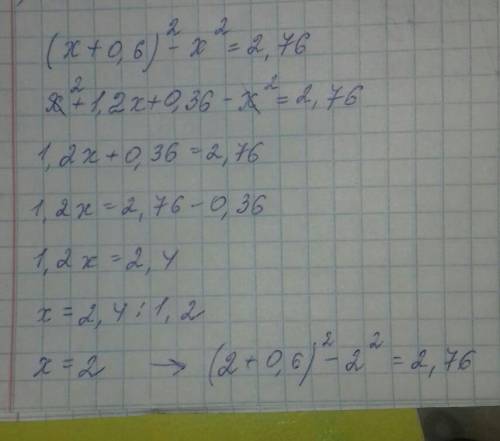 (x+0,6)²-x²=2,76
x²+1,2x+0,36-x²=2,76
1,2x+0,36=2,76
1,2x=2,76-0,36
1,2x=2,4
x=2,4:1,2
x=2 → (2+0,6)²-2²=2,76